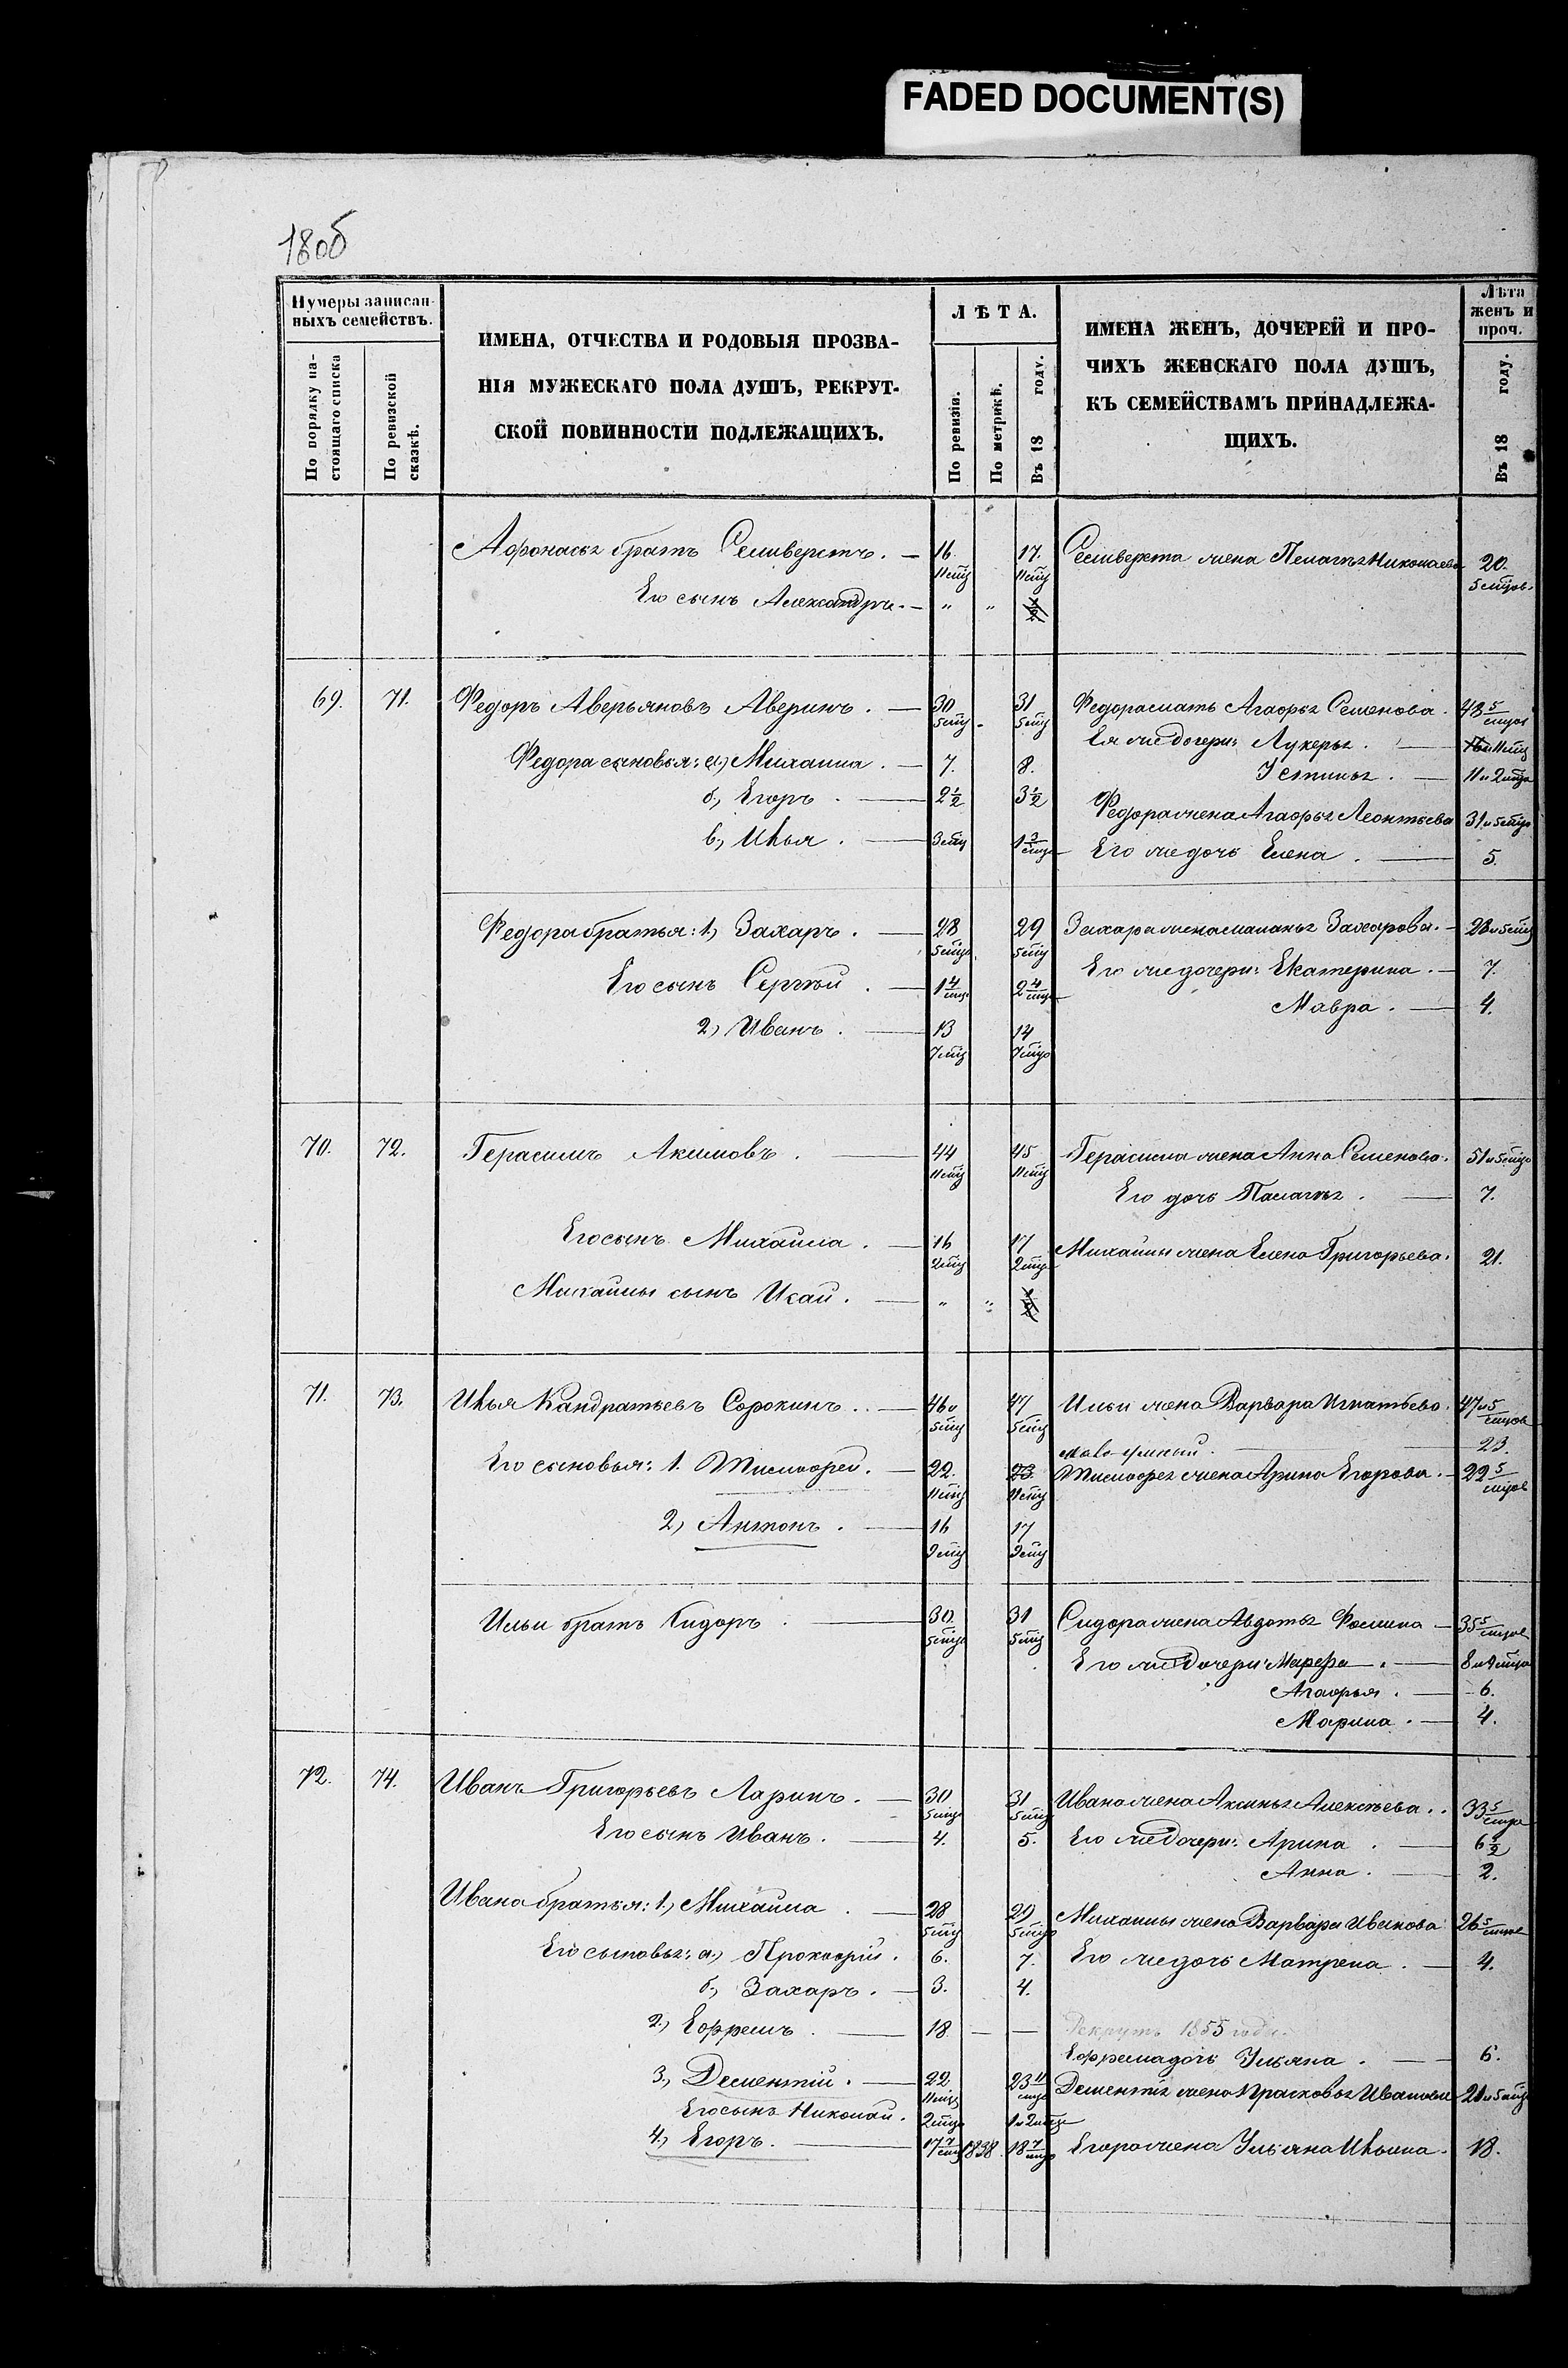 FADED DOCUMENT(S)
180б
Нумеры записан-
ныхъ семействъ.
По порядку на-
стоящаго списка
По ревизской
сказкѣ.
ИМЕНА, ОТЧЕСТВА И РОДОВЫЯ ПРОЗВА-
НІЯ МУЖЕСКАГО ПОЛА ДУШЪ, РЕКРУТ-
СКОЙ ПОВИННОСТИ ПОДЛЕЖАЩИХЪ.
ЛѢТА.
По ревизіи.
По метрикѣ.
Въ 18 году.
ИМЕНА ЖЕНЪ, ДОЧЕРЕЙ И ПРО-
ЧИХЪ ЖЕНСКАГО ПОЛА ДУШЪ,
КЪ СЕМЕЙСТВАМЪ ПРИНАДЛЕЖА-
ЩИХЪ.
Лѣта
женъ и
проч.
Въ 18 году.
Афонасья братъ Селиверстъ. 16. 11 мцъ 17. 11 мцъ Селиверста жена Пелагѣя Николаева 20. 5 мцов.
Его сынъ Александръ. " "
69. 71. Федоръ Аверьяновъ Аверинъ. 30 5 мцъ 31 5 мцъ Федора мать Агафья Семенова. 48 5 мцов
Ея же дочери: Лукерья. 11 мцъ
Федора сыновья: а) Михаила. 7. 8. Устинья. 11 и 2 мца
б) Егоръ. 2½ 3½ Федора жена Агафья Леонтьева 31 и 5 мцъ
в) Илья. 3 мцъ 1 3 мца Его же дочь Елена. 5.
Федора братья: 1) Захаръ. 28 5 мцъ 29 5 мцъ Захара жена Маланья Захарова. 28 и 5 мцъ
Его сынъ Сергѣй. 1 4 мца 2 4 мца Его же дочери: Екатерина. 7.
Мавра. 4.
2) Иванъ. 13 7 мцъ 14 7 мцъ
70. 72. Герасимъ Акимовъ. 44 11 мцъ 45 11 мцъ Герасима жена Анна Семенова. 51 и 5 мцъ
Его дочь Палагѣя. 7.
Его сынъ Михаила. 16 2 мцъ 17 2 мцъ Михайлы жена Елена Григорьева. 21.
Михайлы сынъ Исай. " "
71. 73. Илья Кандратьевъ Сорокинъ. 46 5 мцъ 47 5 мцъ Ильи жена Варвара Игнатьева. 47 и 5 мцов
23.
Его сыновья: 1. Тимофей. 22. 11 мцъ 23 11 мцъ Тимофея жена Арина Егорова. 22 5 мцов
2) Антонъ. 16 9 мцъ 17 9 мцъ
Ильи братъ Сидоръ. 30 5 мцъ 31 5 мцъ Сидора жена Авдотья Фомина 35 5 мцов
Его же дочери: Марфа. 8 и 4 мца
Агафья. 6.
Марина. 4.
72. 74. Иванъ Григорьевъ Ларинъ. 30 5 мцъ 31 5 мцъ Ивана жена Аксинья Алексѣева. 33 5 мца
Его сынъ Иванъ. 4. 5. Его же дочери: Арина 6½
Анна. 2.
Ивана братья: 1) Михаила. 28 5 мцъ 29 5 мцъ Михайлы жена Варвара Иванова 26 5 мцов
Его сыновья: а) Прокофій. 6. 7. Его же дочь Матрена. 4.
б) Захаръ. 3. 4.
2) Ефремъ. 18. Рекрутъ 1855 года.
Ефрема дочь Ульяна. 6.
3) Дементій. 22 11 мцъ 23 11 мца Дементія жена Прасковья Иванова 21 и 5 мцъ
Его сынъ Николай. 2 мца 1 и 2 мца
4) Егоръ. 17 7 мцъ 1838. 18 7 мца Егора жена Ульяна Ильина. 18.